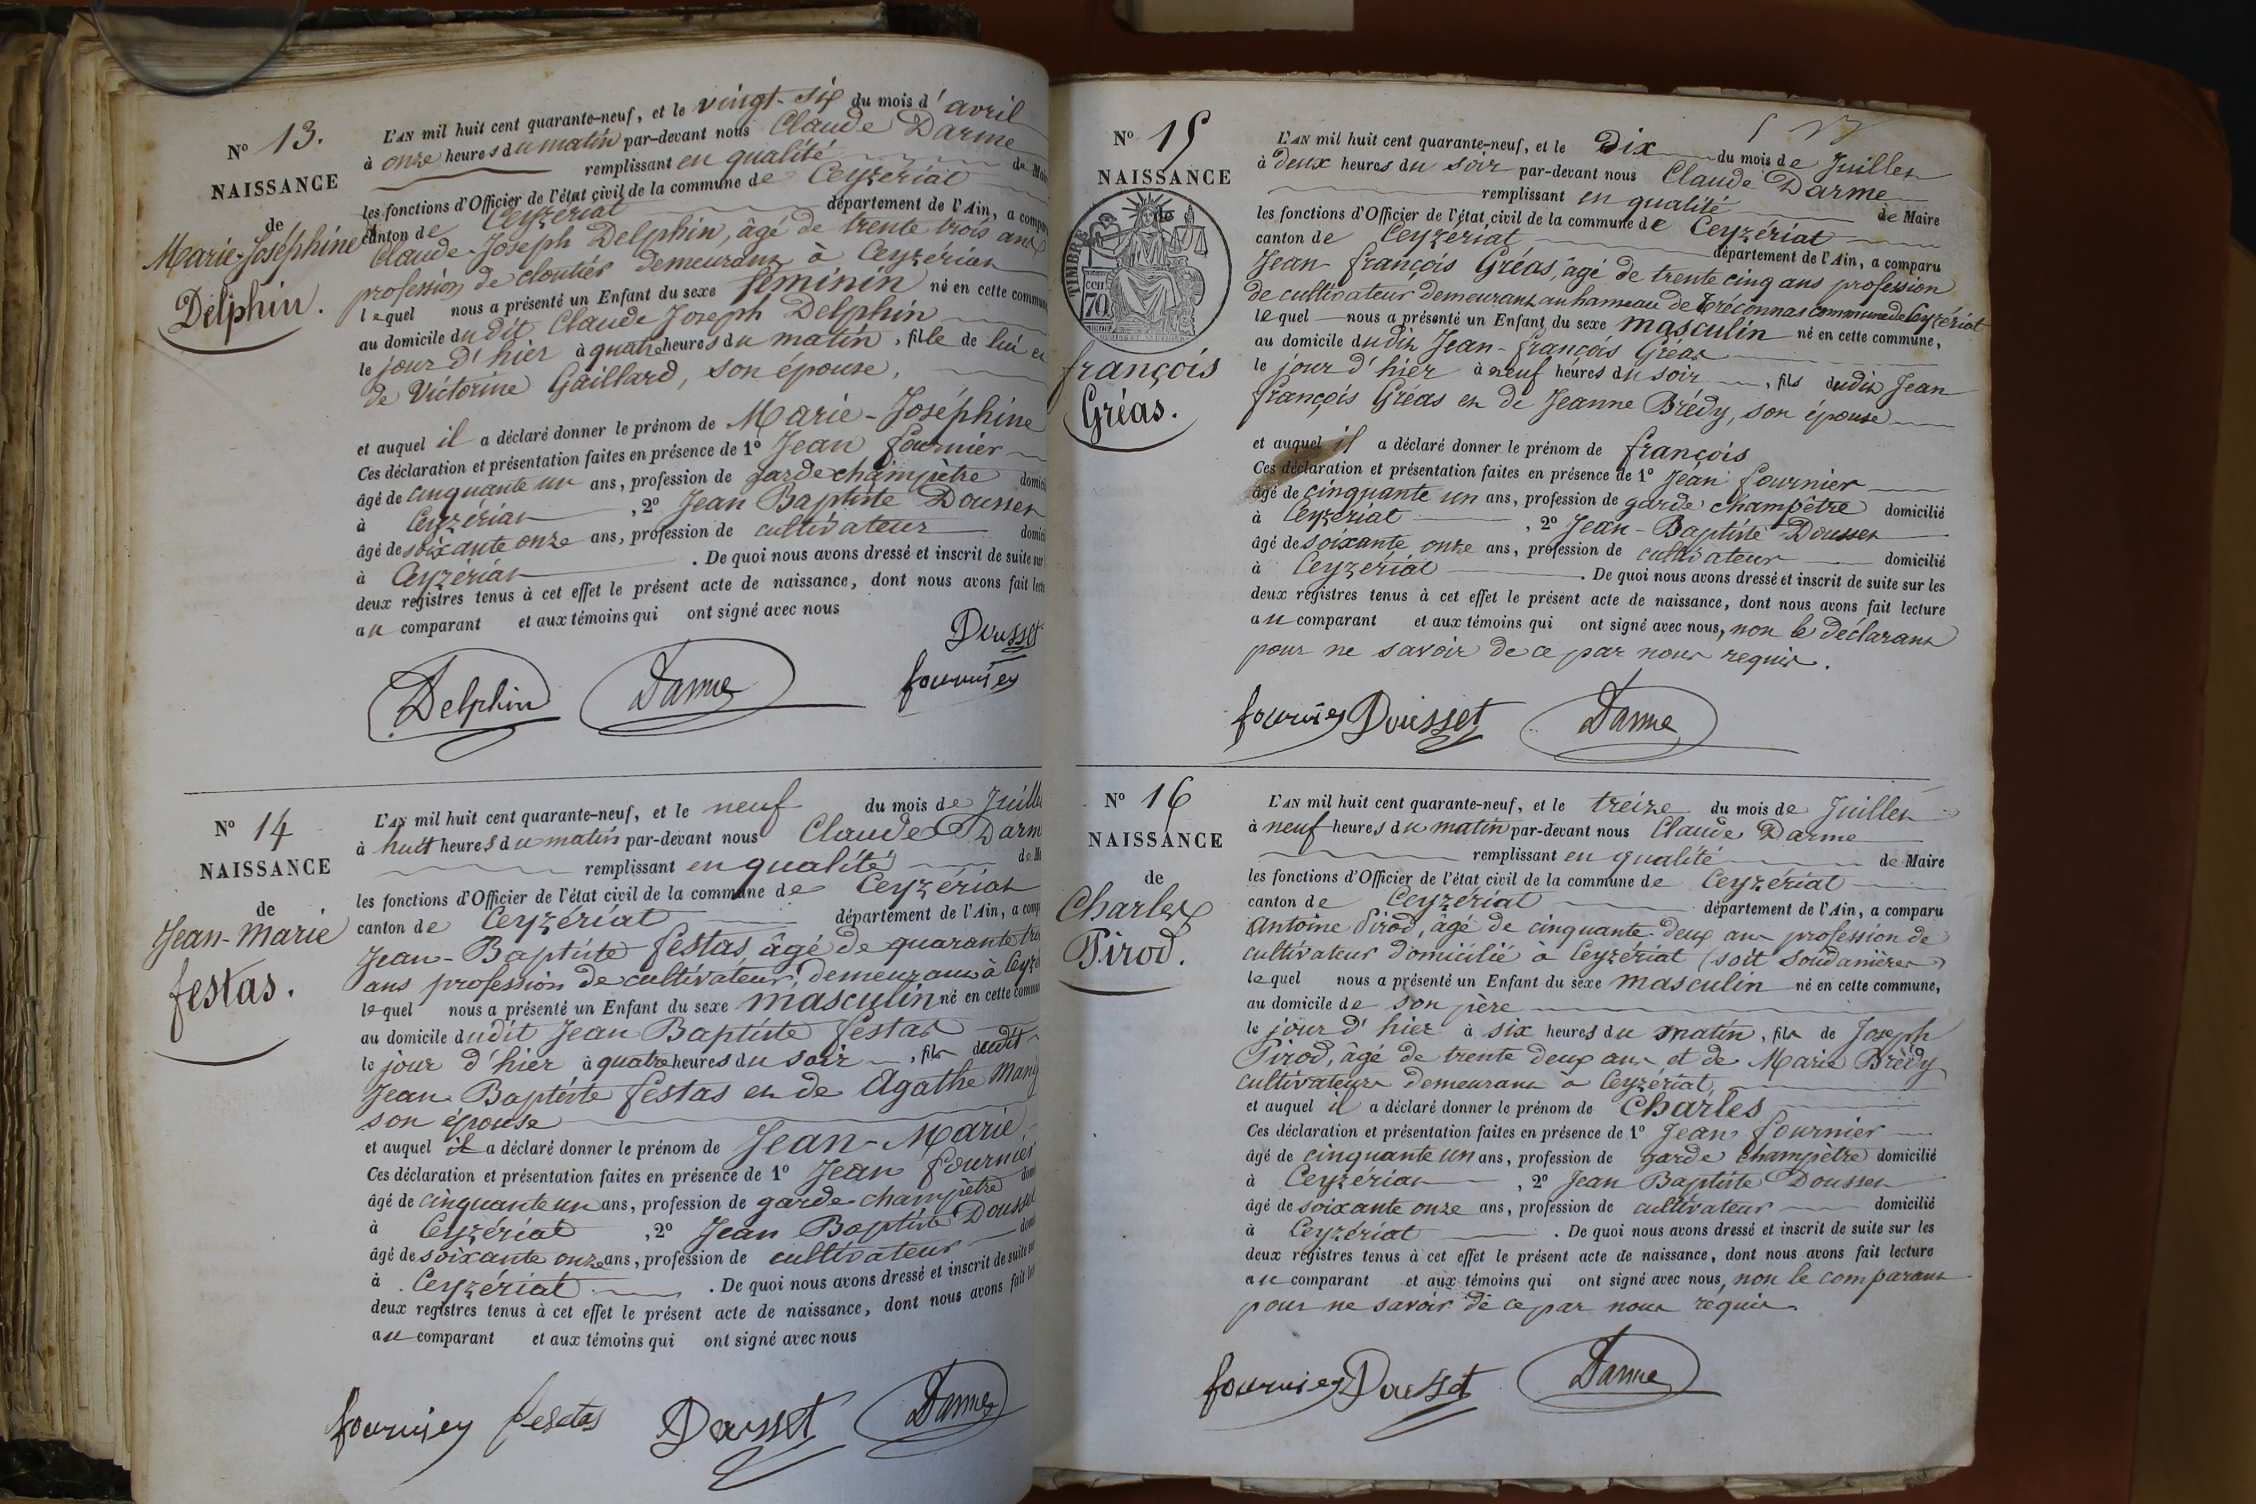 N° 13.
NAISSANCE
de
Marie-Joséphine
Delphin.
L'AN mil huit cent quarante-neuf, et le vingt-six du mois d'avril
à onze heures du matin par-devant nous Claude Darme
remplissant en qualité de Mai
les fonctions d'Officier de l'état civil de la commune de Ceyzériat
canton de Ceyzériat département de l'Ain, a compa
Claude-Joseph Delphin, âgé de trente trois ans
profession de cloutier demeurant à Ceyzériat
lequel nous a présenté un Enfant du sexe féminin né en cette commun
au domicile dudit Claude Joseph Delphin
le jour d'hier à quatre heures du matin, fille de lui et
de Victorine Gaillard, son épouse,
et auquel il a déclaré donner le prénom de Marie-Joséphine
Ces déclaration et présentation faites en présence de 1° Jean fournier
âgé de cinquante un ans, profession de garde champêtre domici
à Ceyzériat, 2° Jean Baptiste Dousset
âgé de soixante onze ans, profession de cultivateur domici
à Ceyzériat. De quoi nous avons dressé et inscrit de suite sur
deux registres tenus à cet effet le présent acte de naissance, dont nous avons fait lectu
au comparant et aux témoins qui ont signé avec nous
Dousset
Delphin Darme fournier
N° 14
NAISSANCE
de
Jean-Marie
festas.
L'AN mil huit cent quarante-neuf, et le neuf du mois de Juill
à huit heures du matin par-devant nous Claude Darm
remplissant en qualité de M
les fonctions d'Officier de l'état civil de la commune de Ceyzériat
canton de Ceyzériat département de l'Ain, a comp
Jean-Baptiste festas âgé de quarante tro
ans profession de cultivateur, demeurant à Ceyzé
lequel nous a présenté un Enfant du sexe masculin né en cette commu
au domicile dudit Jean Baptiste festas
le jour d'hier à quatre heures du soir, fils dudit
Jean Baptiste festas et de Agathe
son épouse
et auquel il a déclaré donner le prénom de Jean-Marie,
Ces déclaration et présentation faites en présence de 1° Jean fournier
âgé de cinquante un ans, profession de garde-champêtre domi
à Ceyzériat, 2° Jean Baptiste Dousse
âgé de soixante onze ans, profession de cultivateur domi
à Ceyzériat. De quoi nous avons dressé et inscrit de suite sur
deux registres tenus à cet effet le présent acte de naissance, dont nous avons fait lec
au comparant et aux témoins qui ont signé avec nous
fournier festas Dousset Darme
N° 15
NAISSANCE
de
TIMBRE
CEN
70
françois
Gréas.
L'AN mil huit cent quarante-neuf, et le Dix du mois de Juillet
à deux heures du soir par-devant nous Claude Darme
remplissant en qualité de Maire
les fonctions d'Officier de l'état civil de la commune de Ceyzériat
canton de Ceyzériat département de l'Ain, a comparu
Jean-françois Gréas, âgé de trente cinq ans profession
de cultivateur demeurant au hameau de tréconnas commune de Ceyzériat
lequel nous a présenté un Enfant du sexe masculin né en cette commune,
au domicile dudit Jean-françois Gréas
le jour d'hier à neuf heures du soir, fils dudit Jean
françois Gréas et de Jeanne Brédy, son épouse
et auquel il a déclaré donner le prénom de françois
Ces déclaration et présentation faites en présence de 1° Jean fournier
âgé de cinquante un ans, profession de garde champêtre domicilié
à Ceyzériat, 2° Jean-Baptiste Dousset
âgé de soixante onze ans, profession de cultivateur domicilié
à Ceyzériat. De quoi nous avons dressé et inscrit de suite sur les
deux registres tenus à cet effet le présent acte de naissance, dont nous avons fait lecture
au comparant et aux témoins qui ont signé avec nous, non le déclarant
pour ne savoir de ce par nous requis.
fournier Dousset Darme
N° 16
NAISSANCE
de
Charles
Pirod.
L'AN mil huit cent quarante-neuf, et le treize du mois de Juillet
à neuf heures du matin par-devant nous Claude Darme
remplissant en qualité de Maire
les fonctions d'Officier de l'état civil de la commune de Ceyzériat
canton de Ceyzériat département de l'Ain, a comparu
Antoine Pirod, âgé de cinquante-deux ans profession de
cultivateur domicilié à Ceyzériat (soit Soudanières)
lequel nous a présenté un Enfant du sexe masculin né en cette commune,
au domicile de son père
le jour d'hier à six heures du matin, fils de Joseph
Pirod, âgé de trente deux ans et de Marie Brédy
cultivateurs demeurant à Ceyzériat,
et auquel il a déclaré donner le prénom de Charles
Ces déclaration et présentation faites en présence de 1° Jean fournier
âgé de cinquante un ans, profession de garde champêtre domicilié
à Ceyzériat, 2° Jean Baptiste Dousset
âgé de soixante onze ans, profession de cultivateur domicilié
à Ceyzériat. De quoi nous avons dressé et inscrit de suite sur les
deux registres tenus à cet effet le présent acte de naissance, dont nous avons fait lecture
au comparant et aux témoins qui ont signé avec nous, non le comparant
pour ne savoir de ce par nous requis.
fournier Dousset Darme